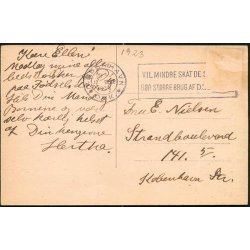 Kære Ellen!
Modtag mine aller
bedste ønsker
paa Fødselsdagen
Hils Din Mand
Børnene og vær
selv kærlig hilset
af Din hengivne
Hertha.
KØBENHAVN
1923
VIL MINDRE SKAT DE
GØR STØRRE BRUG AF
Frue E. Nielsen
Strandboulevard
141.
København